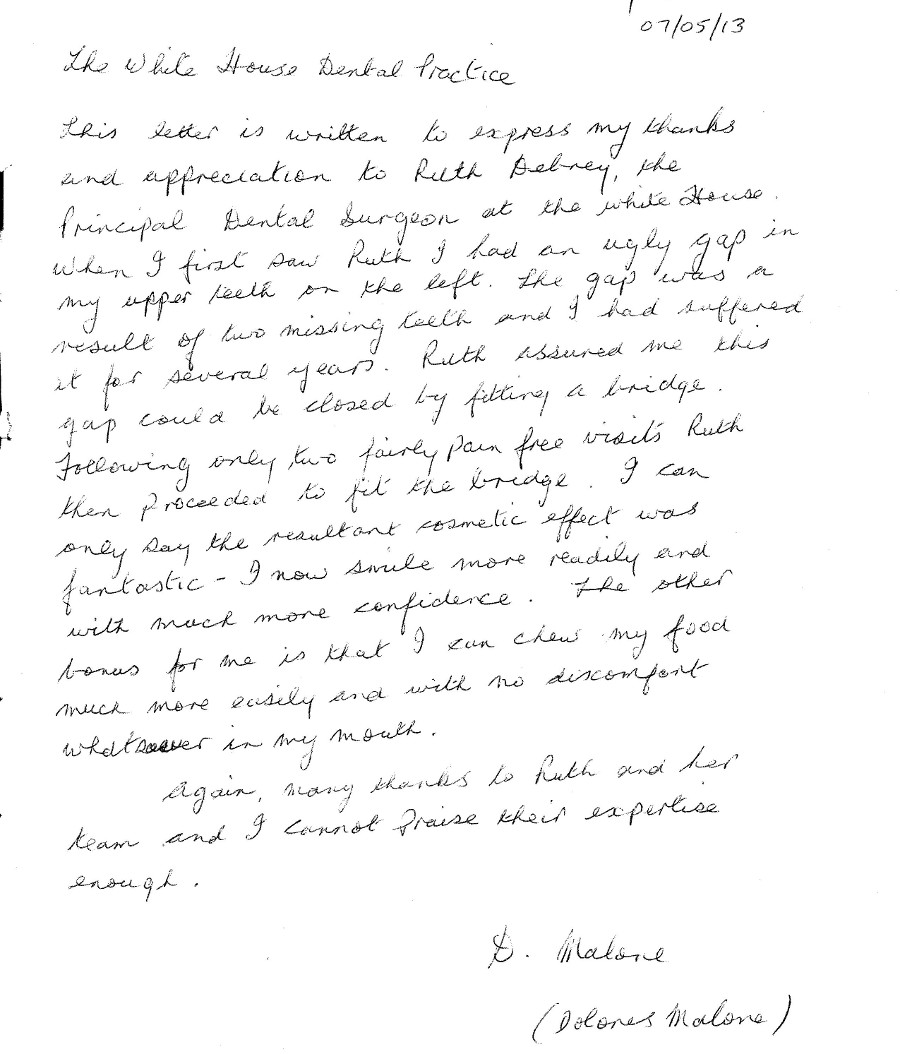 07/05/13
The White House Dental Practice
This letter is written to express my thanks
and appreciation to Ruth Debney, the
Principal Dental Surgeon at the white House.
When I first saw Ruth I had an ugly gap in
my upper teeth on the left. The gap was a
result of two missing teeth and I had suffered
it for several years. Ruth assured me this
gap could be closed by fitting a bridge.
Following only two fairly pain free visits Ruth
then proceeded to fit the bridge. I can
only say the resultant cosmetic effect was
fantastic - I now smile more readily and
with much more confidence. The other
bonus for me is that I can chew my food
much more easily and with no discomfort
whatsoever in my mouth.
Again, many thanks to Ruth and her
team and I cannot praise their expertise
enough.
D. Malone
(Dolores Malone)